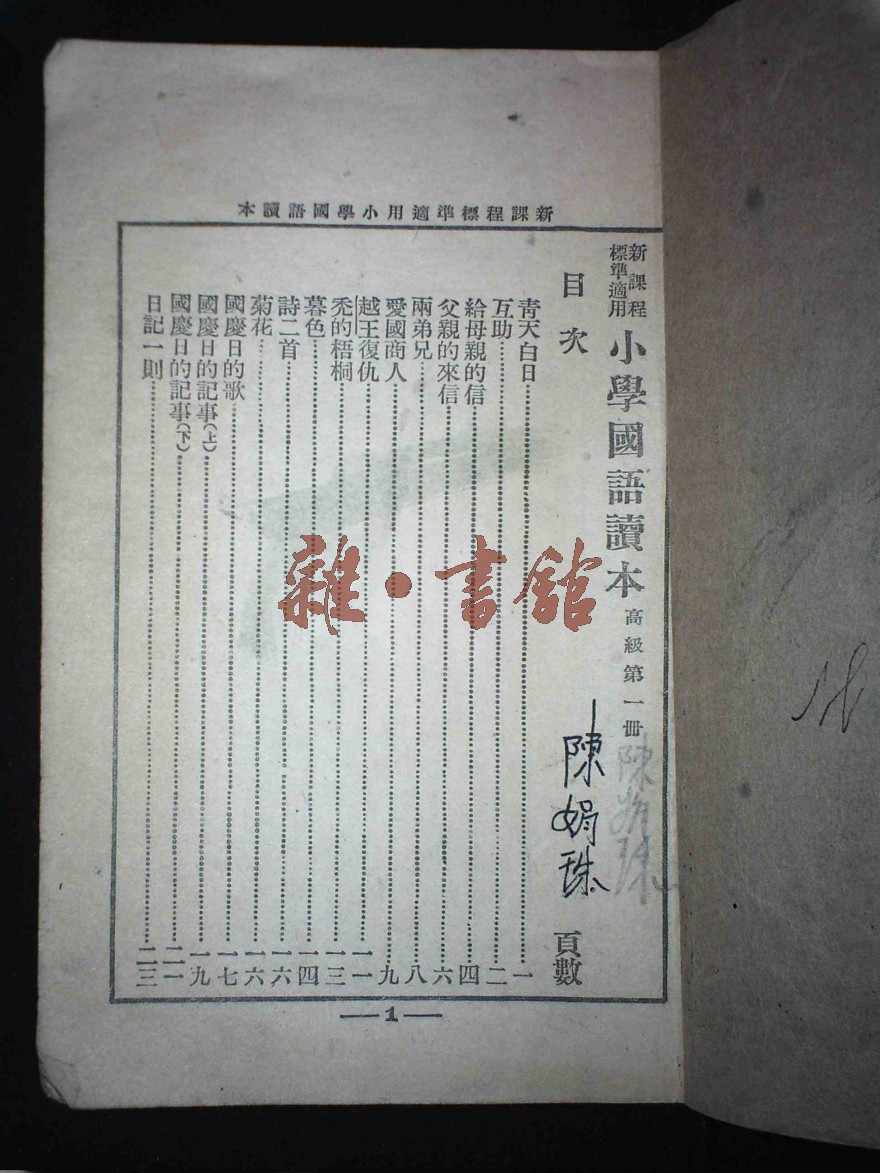 新課程標準適用小學國語讀本
新課程
標準適用
小學國語讀本 高級第一冊
目次 頁數
青天白日 一
互助 二
給母親的信 四
父親的來信 六
兩弟兄 八
愛國商人 九
越王復仇 一一
禿的梧桐 一三
暮色 一四
詩二首 一六
菊花 一六
國慶日的歌 一七
國慶日的記事(上) 一九
國慶日的記事(下) 二一
日記一則 二三
陳娟珠
雜·書館
1